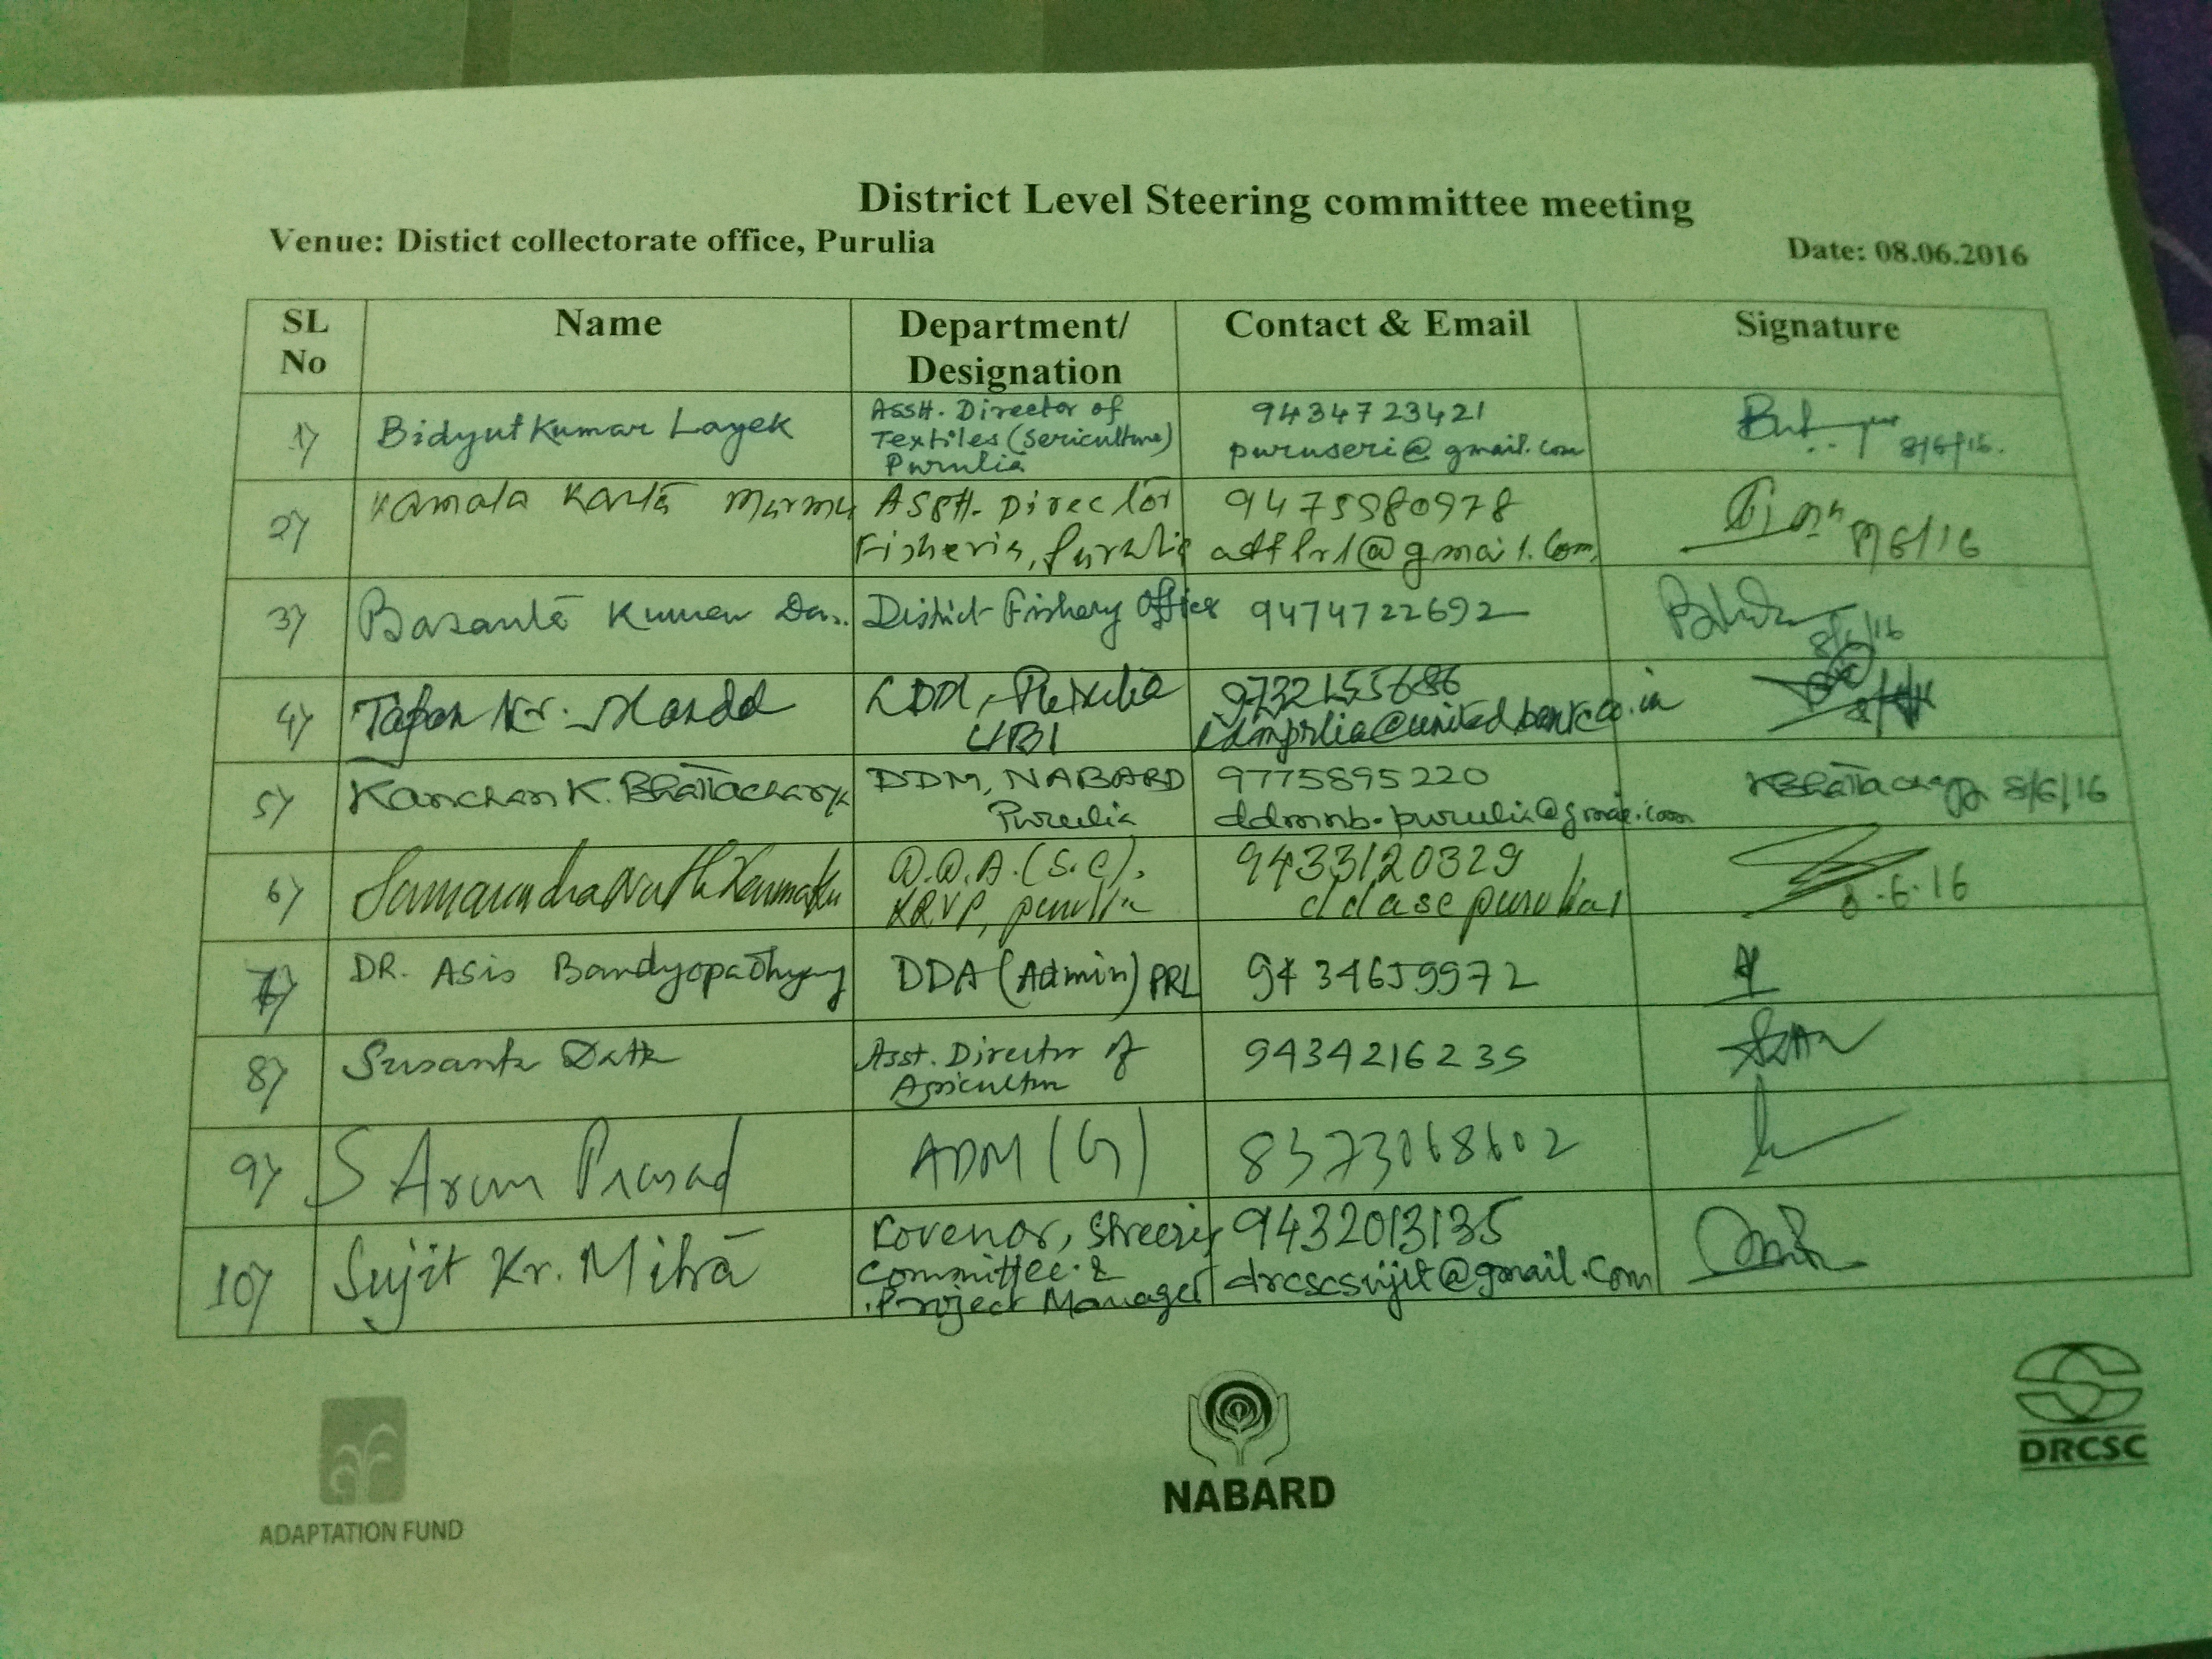 District Level Steering committee meeting
Venue: Distict collectorate office, Purulia
Date: 08.06.2016
SL No
Name
Department/
Designation
Contact & Email
Signature
1)
Bidyut Kumar Layek
Asstt. Director of
Textiles (Sericulture)
Purulia
9434723421
puruseri@gmail.com
8/6/16.
2)
Kamala Kanta Murmu
Asstt. Director
Fisheris, Purulia
9475980978
@gmail.com
8/6/16
3)
Basanta Kumar Das.
District Fishery Officer
9474722692
8/6/16
4)
Tapan Kr. Mandal
LDM, Purulia
UBI
9732155686
ldmprlia@unitedbank.co.in
5)
Kanchan K. Bhattacharya
DDM, NABARD
Purulia
9775895220
ddmnb.purulia@gmail.com
KBhattacharya 8/6/16
6)
Samarendra Nath Karmakar
D.D.A. (S.C),
purulia
9433120329
ddasepurulia1
8.6.16
7)
DR. Asis Bandyopadhyay
DDA (Admin) PRL
9434659972
8)
Susanta Datta
Asst. Director of
Agricultur
9434216235
9)
S Arun Prasad
ADM (G)
8373068602
10)
Sujit Kr. Mitra
Kovenor, Streering
Committee &
Project Manager
9432013135
drcscsujit@gmail.com
ADAPTATION FUND
NABARD
DRCSC